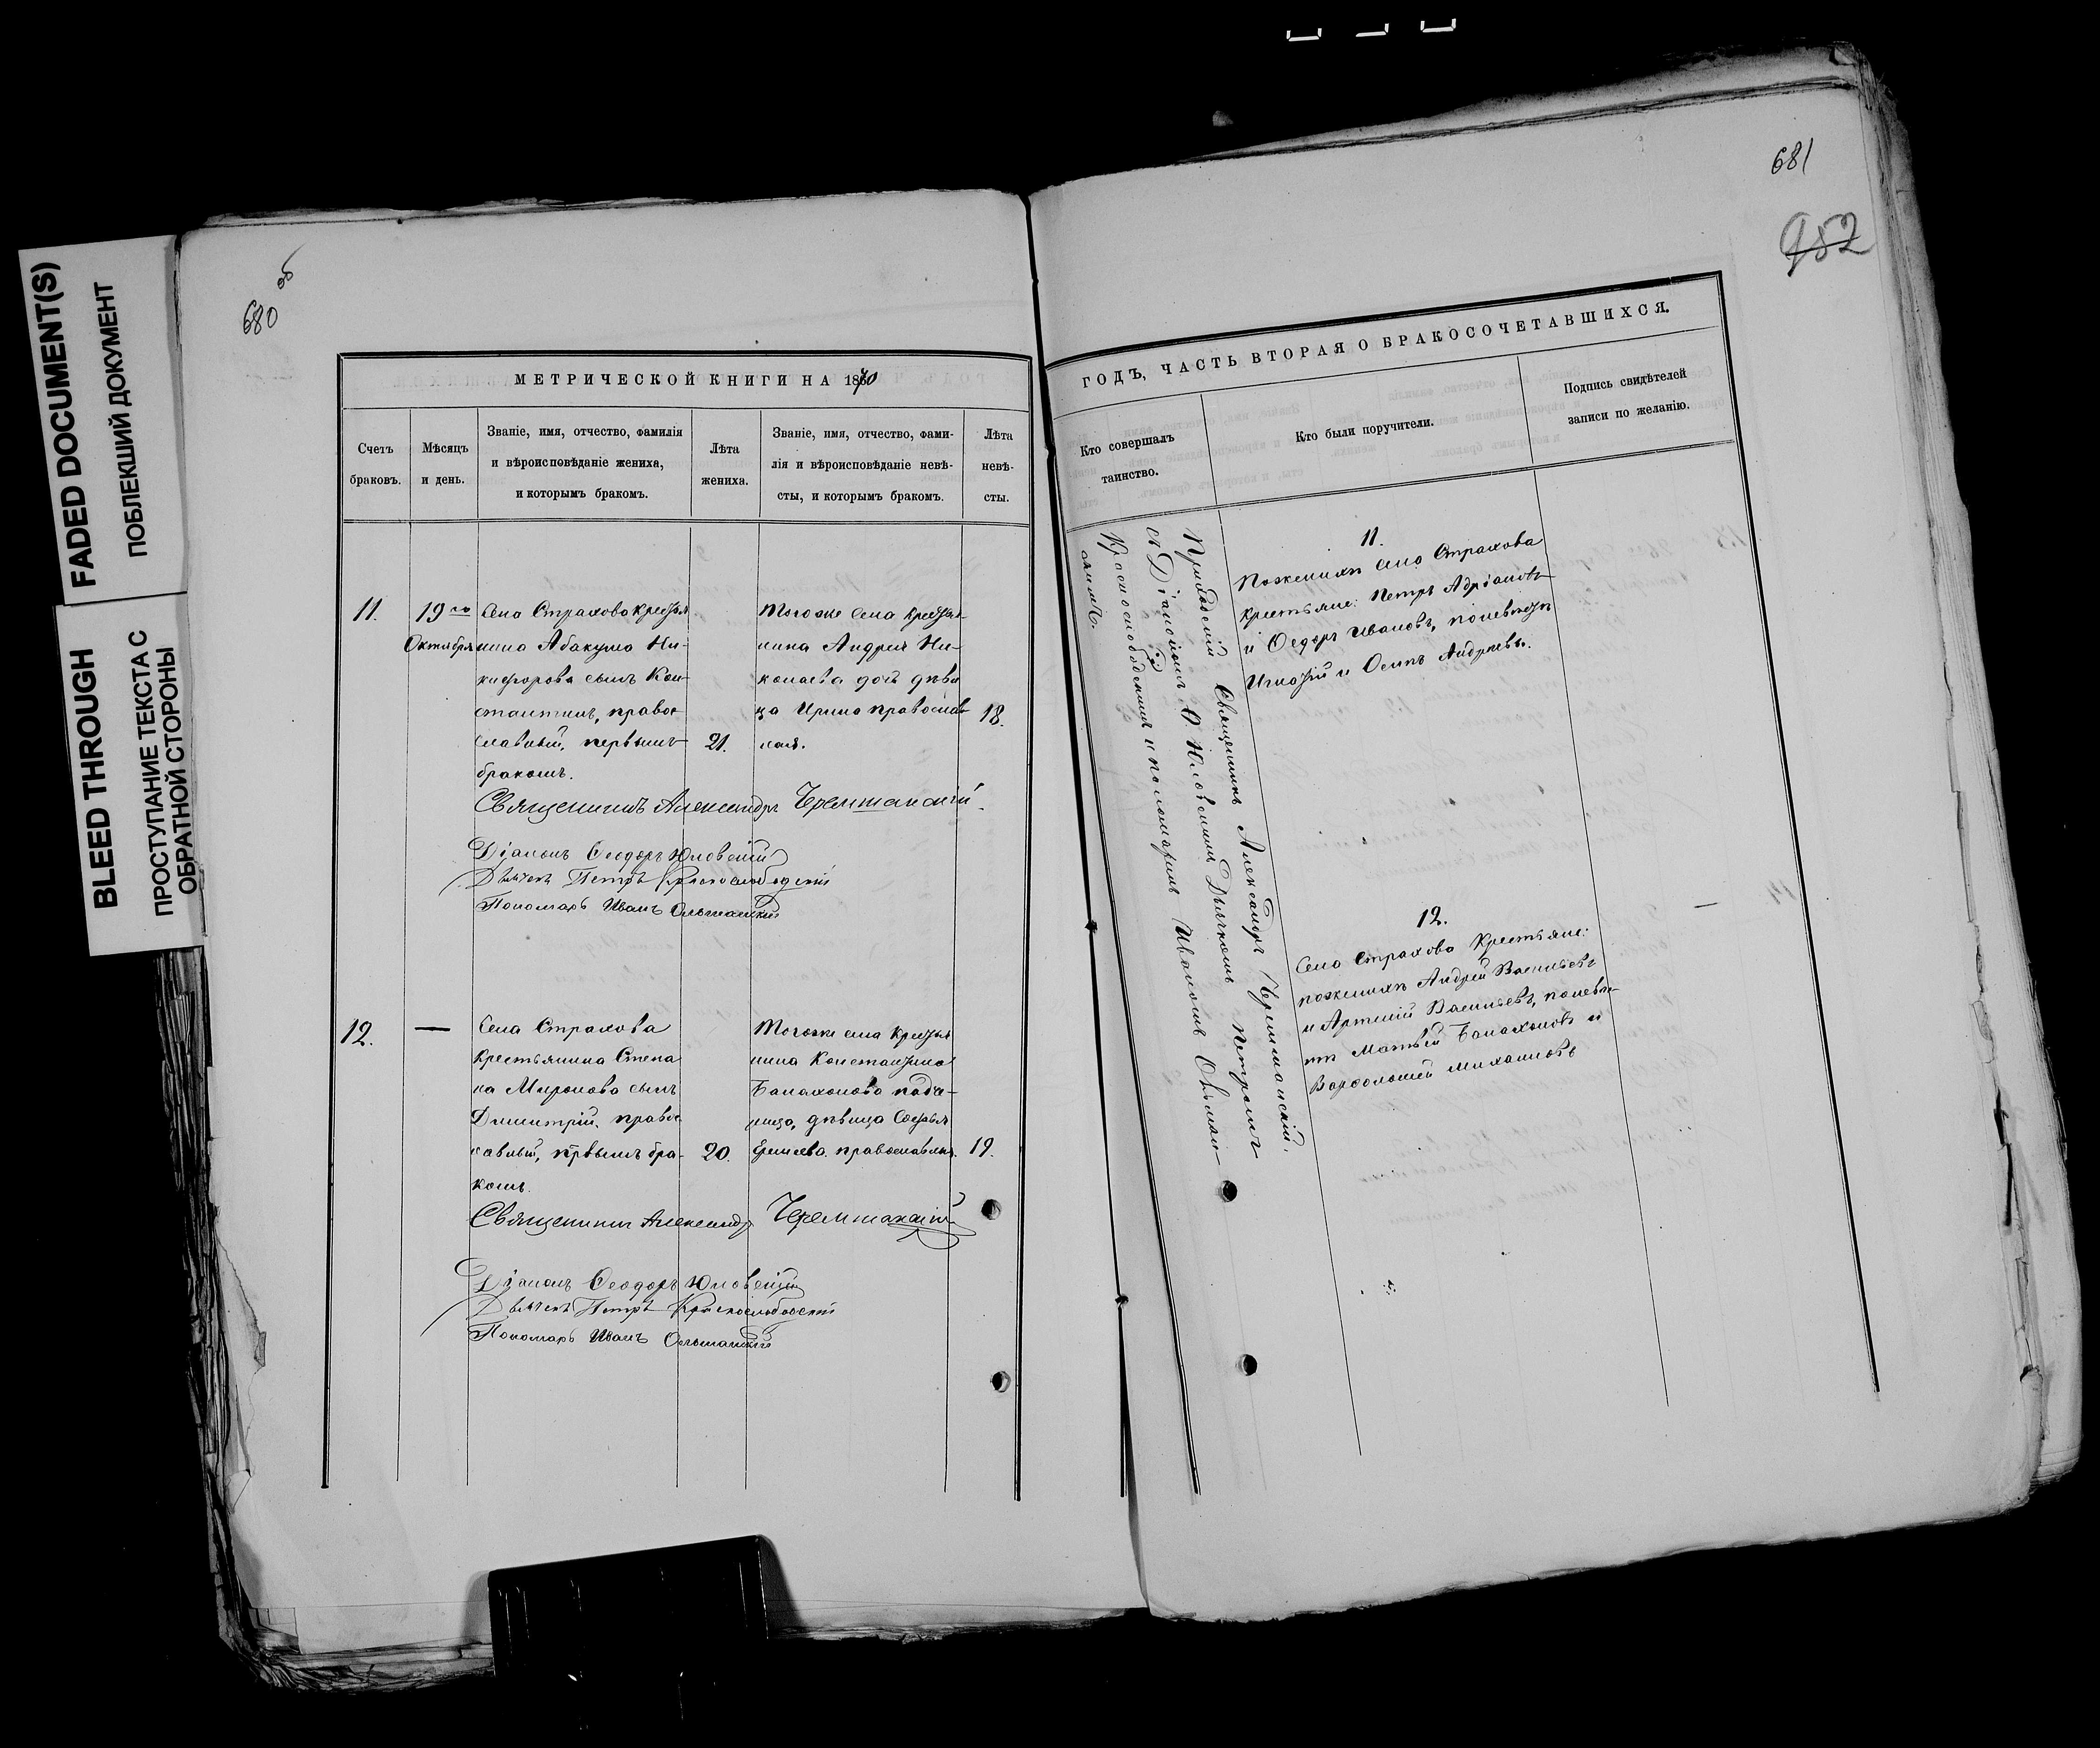 FADED DOCUMENT(S)
ПОБЛЕКШИЙ ДОКУМЕНТ
BLEED THROUGH
ПРОСТУПАНИЕ ТЕКСТА С
ОБРАТНОЙ СТОРОНЫ
680 об
МЕТРИЧЕСКОЙ КНИГИ НА 1870
Счетъ
браковъ.
Мѣсяцъ
и день.
Званіе, имя, отчество, фамилія
и вѣроисповѣданіе жениха,
и которымъ бракомъ.
Лѣта
жениха.
Званіе, имя, отчество, фами-
лія и вѣроисповѣданіе невѣ-
сты, и которымъ бракомъ.
Лѣта
невѣ-
сты.
11.
19го
Октября
Села Страхова крестья
нина Абакума Ни-
кифорова сынъ Кон-
стантинъ, право-
славный, первымъ
бракомъ.
21.
Того же села крестья-
нина Андрея Ни-
колаева дочь дѣви
ца Ирина православ
ная.
18.
Священникъ Александръ Черемшанскій
Діаконъ Ѳеодоръ Юловскій
Дьячекъ Петръ Краснослободскій
Пономарь Иванъ Ольшанскій
12.
—
Села Страхова
Крестьянина Степа
на Миронова сынъ
Димитрій, право
славный, первымъ бра-
комъ.
20.
Того же села крестья
нина Константина
Балахонова падче-
рица, дѣвица Софья
православная.
19.
Священникъ Александръ Черемшанскій
Діаконъ Ѳеодоръ Юловскій
Дьячекъ Петръ Краснослободскій
Пономарь Иванъ Ольшанскій
681
952
ГОДЪ, ЧАСТЬ ВТОРАЯ О БРАКОСОЧЕТАВШИХСЯ.
Кто совершалъ
таинство.
Кто были поручители.
Подпись свидѣтелей
записи по желанію.
Приходскій Священникъ Александръ Черемшанскій,
съ Діакономъ Ѳ. Юловскимъ Дьячкомъ Петромъ
Краснослободскимъ и пономаремъ Иваномъ Ольшан-
скимъ.
11.
По женихѣ села Страхова
крестьяне: Петръ Адріановъ
и Ѳедоръ Ивановъ, по невѣстѣ
Игнатій и Осипъ Андреевы.
12.
Села Страхова Крестьяне:
по женихѣ Андрей Васильевъ
и Артемій Васильевъ, по невѣс-
тѣ Матвѣй Балахоновъ и
Варфоломей Михайловъ
—